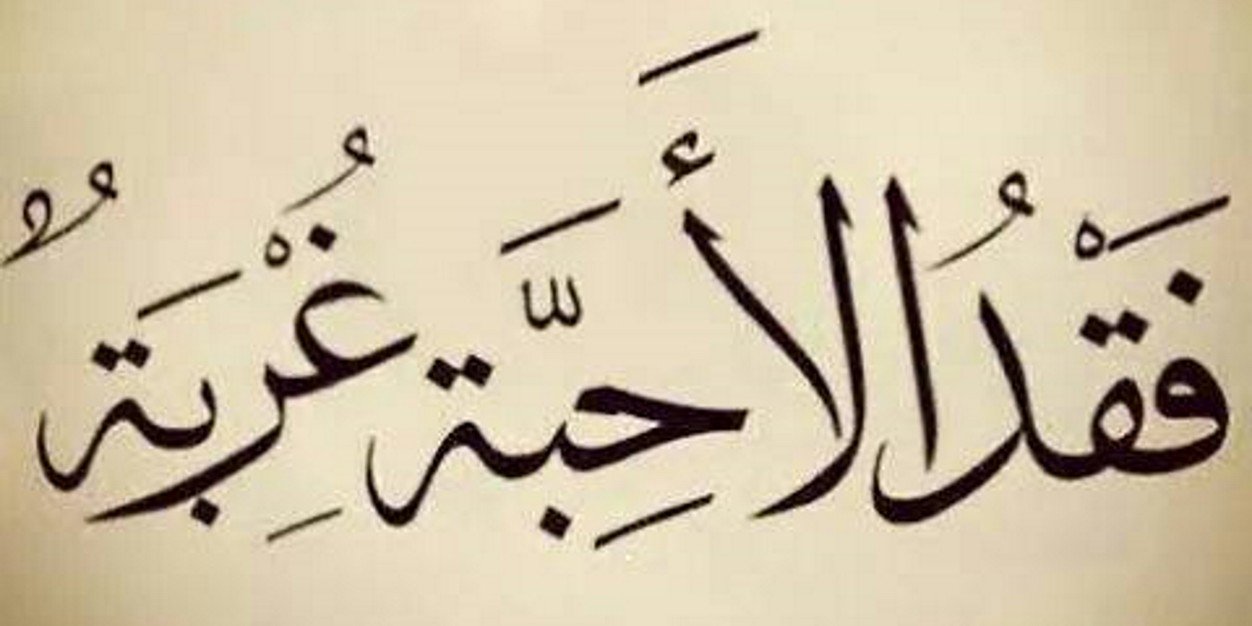 فَقْدُ الأَحِبَّةِ غُرْبَةٌ